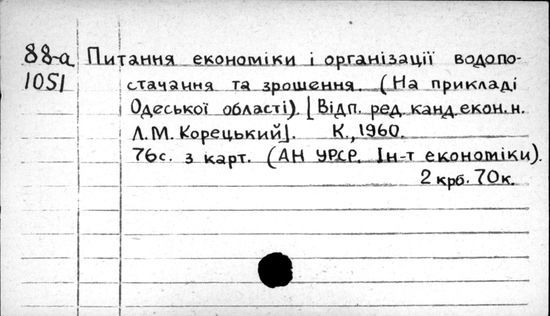 88-а Питання економіки і організації водопо-
1051 стачання та зрошення. (На прикладі
Одеської області). [Відп. ред. канд. екон. н.
Л.М. Корецький]. К., 1960.
76с. з карт. (АН УРСР. Ін-т економіки).
2 крб. 70к.